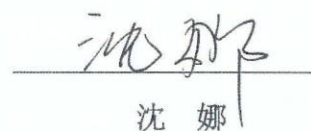 沈娜
沈 娜